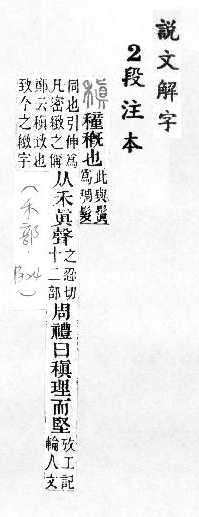 說文解字
2段注本
稹 穜穊也 此與鬒爲稠髮
同也引伸爲凡密緻之偁 从禾眞聲 之忍切十二部 周禮曰稹理而堅 攷工記輪人文
鄭云稹致也致今之緻字
（禾部